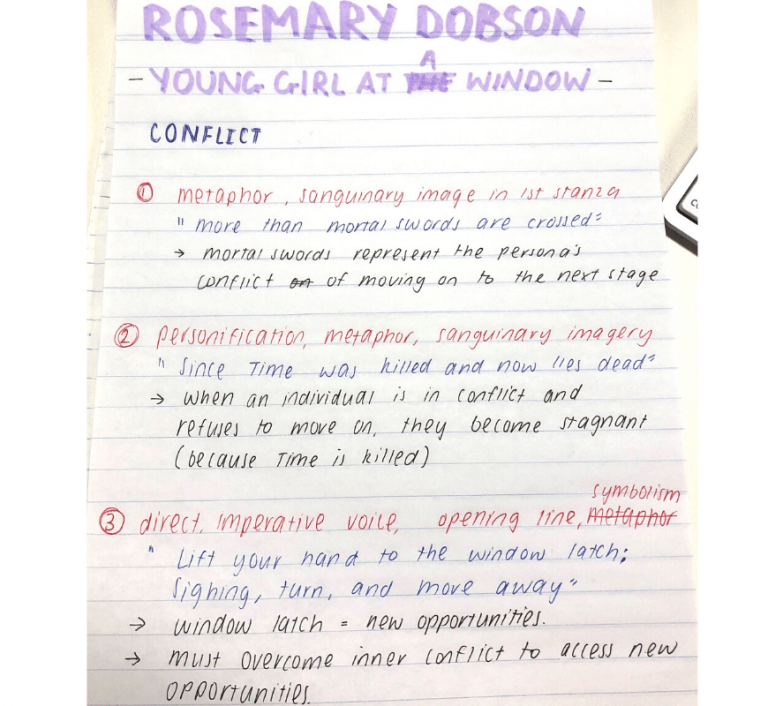 ROSEMARY DOBSON
A
- YOUNG GIRL AT THE WINDOW -
CONFLICT
① metaphor, sanguinary image in 1st stanza
"more than mortal swords are crossed"
→ mortal swords represent the persona's
conflict on of moving on to the next stage
② personification, metaphor, sanguinary imagery
"Since Time was killed and now lies dead"
→ when an individual is in conflict and
refuses to move on, they become stagnant
(because Time is killed)
symbolism
③ direct, imperative voice, opening line, metaphor
"Lift your hand to the window latch:
Sighing, turn, and move away"
→ window latch = new opportunities.
→ must overcome inner conflict to access new
opportunities.